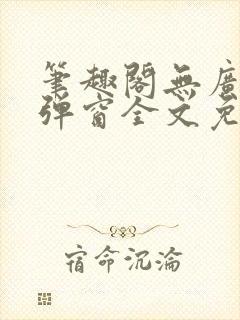 筆趣閣無廣
彈窗全文免
宿命沉淪